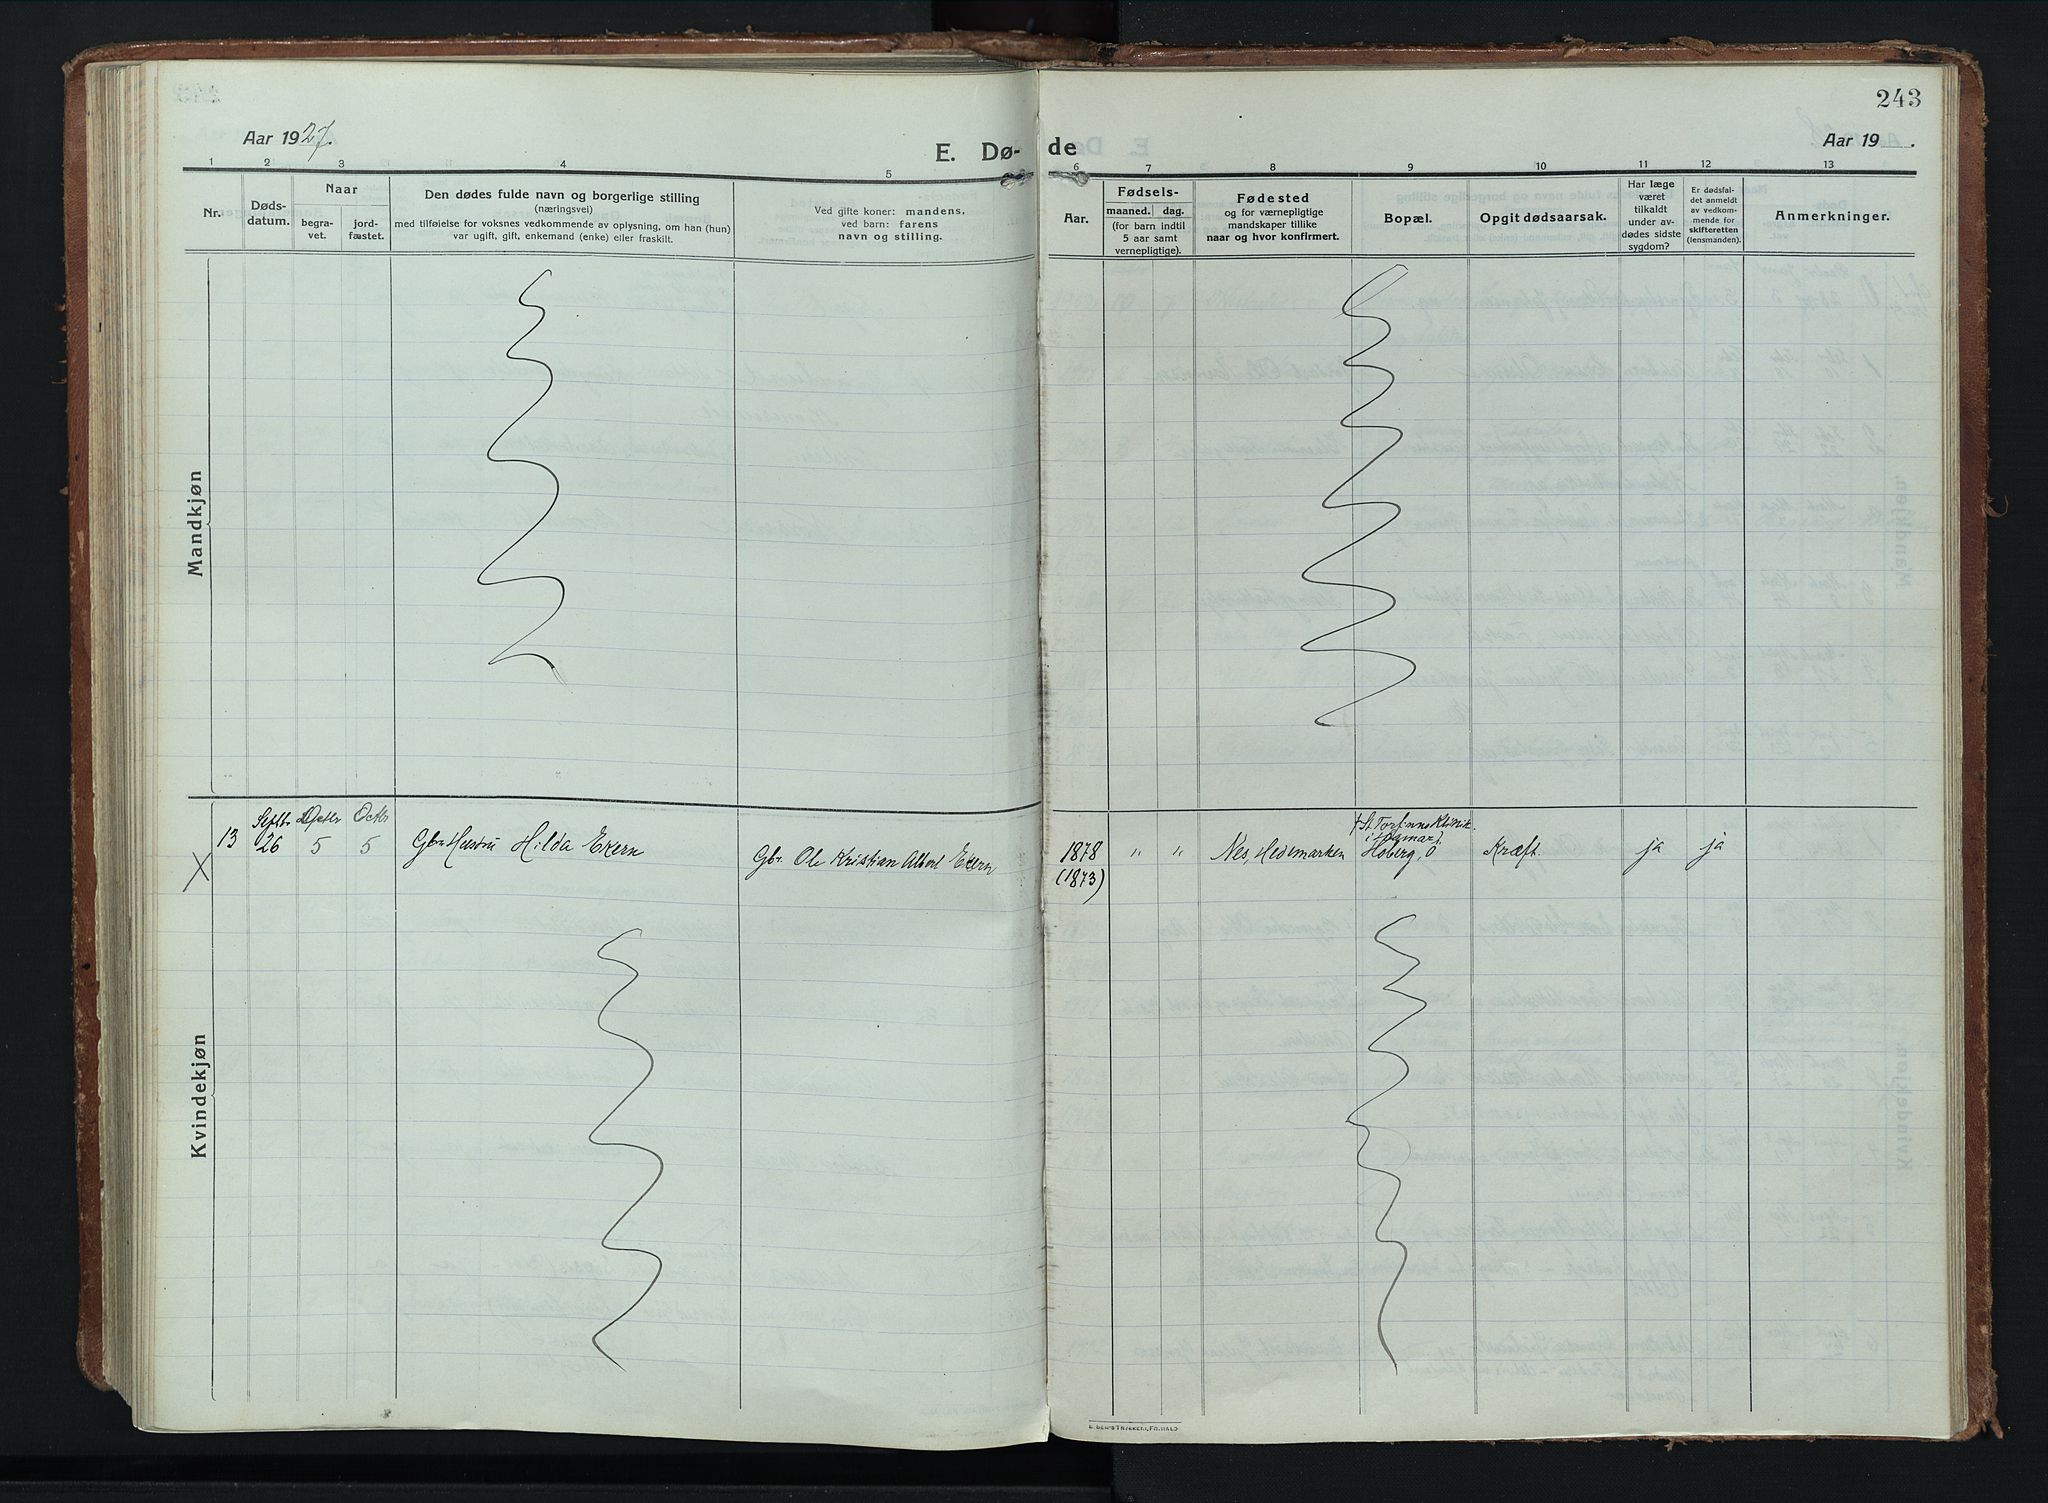 243
Aar 1927.
E. Dø-
de
Aar 19 .
1 2 3 4 5 6 7 8 9 10 11 12 13
Nr.
Døds-
datum.
Naar
begra-
vet.
jord-
fæstet.
Den dødes fulde navn og borgerlige stilling
(næringsvei)
med tilføielse for voksnes vedkommende av oplysning, om han (hun)
var ugift, gift, enkemand (enke) eller fraskilt.
Ved gifte koner: mandens,
ved barn: farens
navn og stilling.
Aar.
Fødsels-
maaned. dag.
(for barn indtil
5 aar samt
vernepligtige).
Fødested
og for værnepligtige
mandskaper tillike
naar og hvor konfirmert.
Bopæl.
Opgit dødsaarsak.
Har læge
været
tilkaldt
under av-
dødes sidste
sygdom?
Er dødsfal-
det anmeldt
av vedkom-
mende for
skifteretten
(lensmanden).
Anmerkninger.
Mandkjøn
13
X
Septbr
26
Octbr
5
Octbr
5
Gbr. Hustru Hilda Ekern
Gbr. Ole Kristian Albert Ekern
1878
(1873)
" "
Nes, Hedemarken
† St. Torfinns Klinik
i Hamar
Hoberg, ö
Kræft.
ja
ja
Kvindekjøn